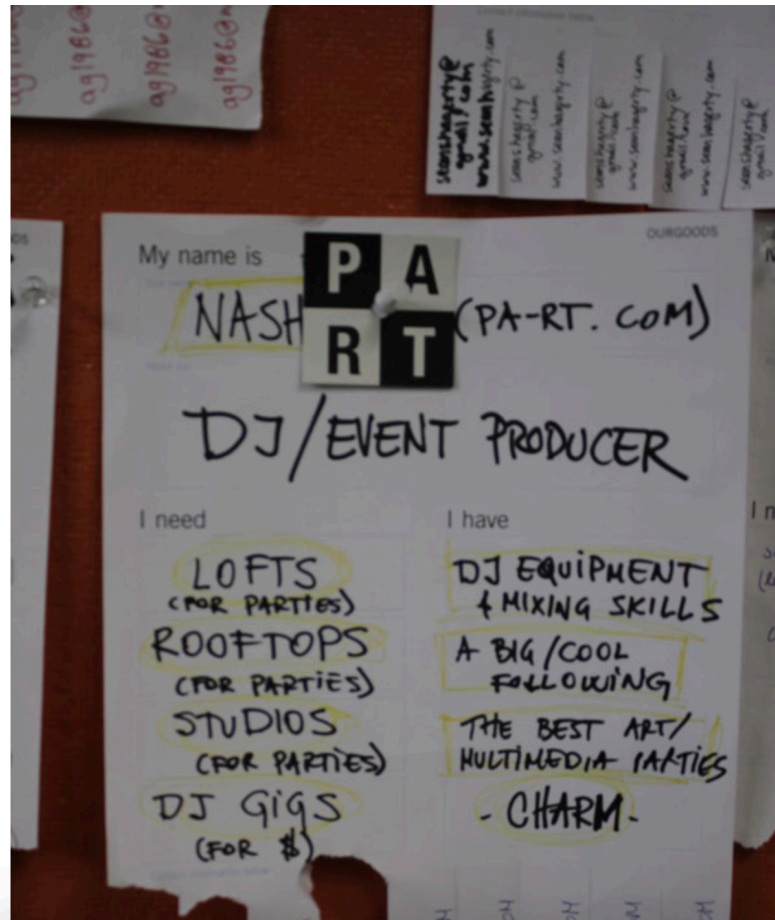 ag1986@
ag1986@
ag1986@
Contact information below
seanshagerty@
gmail/com
www.seanshagerty.com
seanshagerty@
gmail.com
www.seanshagerty.com
seanshagerty@
gmail/com
www.seanshagerty.com
seanshagerty@
gmail/com
www.seanshagerty.com
seanshagerty@
gmail/com
OURGOODS
My name is
P A
R T
NASH
(PA-RT.COM)
DJ/EVENT PRODUCER
I need
LOFTS
(FOR PARTIES)
ROOFTOPS
(FOR PARTIES)
STUDIOS
(FOR PARTIES)
DJ GIGS
(FOR $)
I have
DJ EQUIPMENT
& MIXING SKILLS
A BIG/COOL
FOLLOWING
THE BEST ART/
MULTIMEDIA PARTIES
- CHARM -
Contact information below